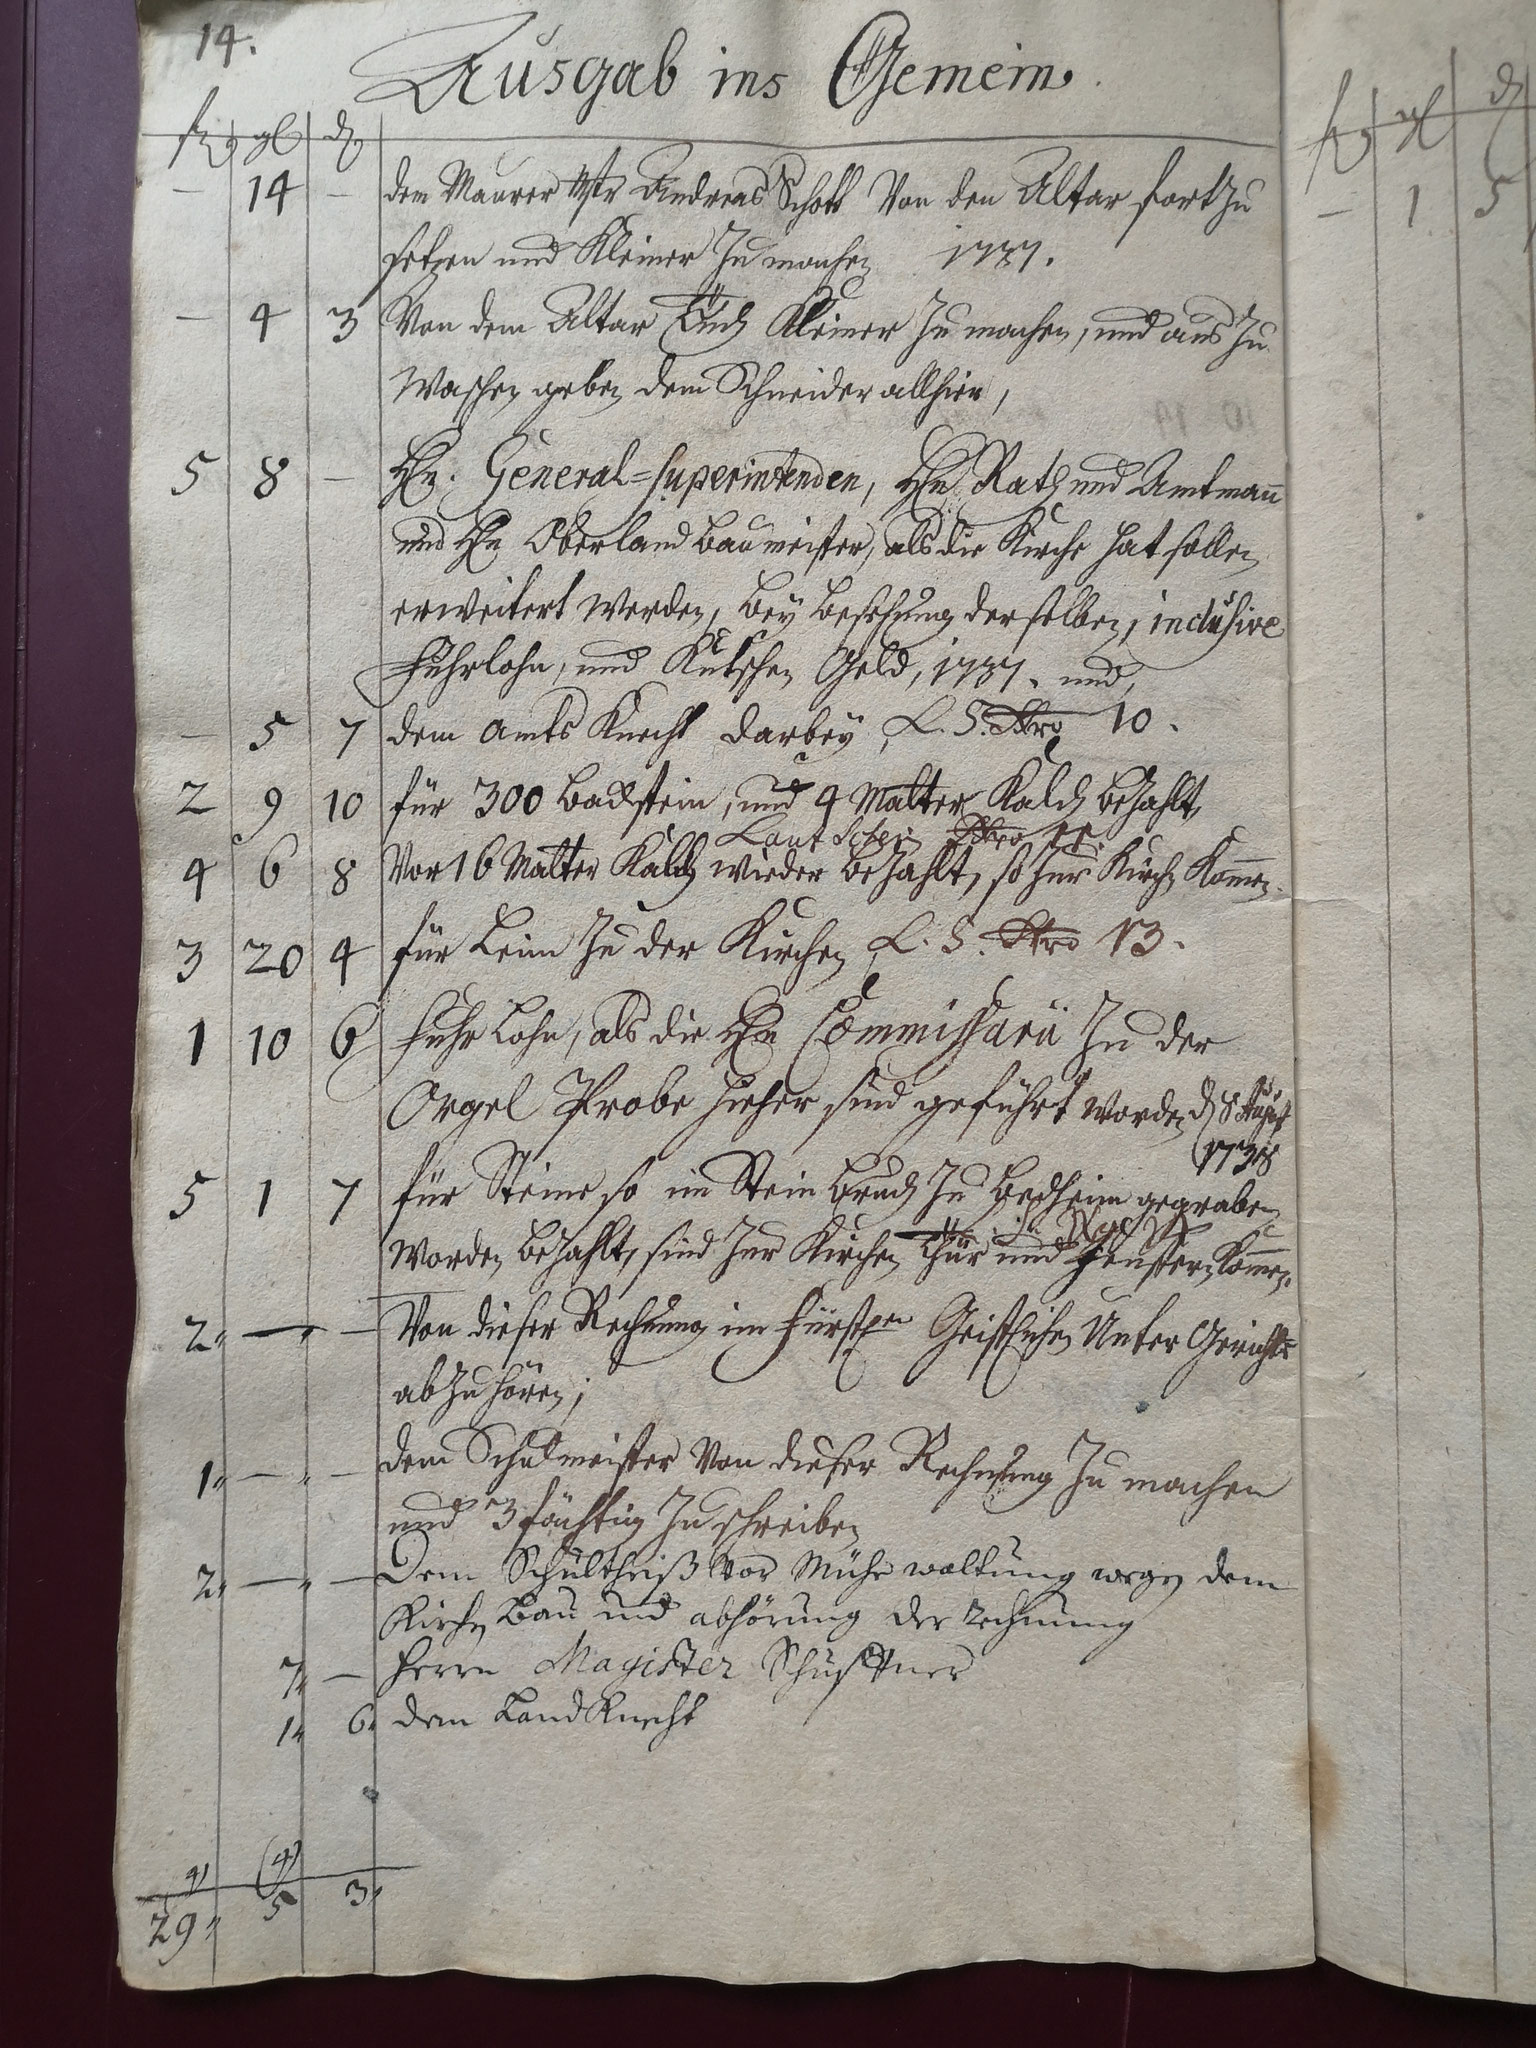 14.
Ausgab ins Gemein.
fl gl d
— 14 — dem Maurer Mstr Andreas Schott Von den Altar fortzu
setzen und Kleiner Zu machen 1737.
— 4 3 Von dem Altar Tuch Kleiner Zu machen, und aus Zu
Waschen geben dem Schneider allhier,
5 8 — Hn. General-Superintenden, Hn Rath und Amtmann
und Hn Oberland baumeister, als die Kirche hat sollen
erweitert werden, bey besehung derselben, inclusive
Fuhrlohn, und Kutschen Geld, 1737. und,
— 5 7 dem Amts Knecht darbey, L. S. Nro 10.
2 9 10 für 300 backstein, und 4 Malter Kalch bezahlt,
Laut Schein Nro 11.
4 6 8 Vor 16 Malter Kalch wieder bezahlt, so zur Kirch Kommen.
3 20 4 für Leim Zu der Kirchen L. S. Nro 13.
1 10 6 Fuhr Lohn, als die Hn Commissarii Zu der
Orgel Probe hieher sind geführt worden, d 8 August
1738
5 1 7 für Steine so im Stein bruch Zu Bedheim gegraben
worden bezahlt, sind zur Kirchen Thür und Fenstern Kommen.
2 — — Von dieser Rechnung im Fürstl Geistlichen Unter Gericht
abzuhören;
1 — — dem Schulmeister Von dieser Rechnung Zu machen
und 3 fächtig Zu schreiben
2 — — Dem Schultheiß Vor Mühe waltung wegen dem
Kirchen Bau und abhörung der rechnung
7 — Herrn Magister
1 6 dem Land Knecht
4 (4)
29 5 3
fl gl d
— 1 5